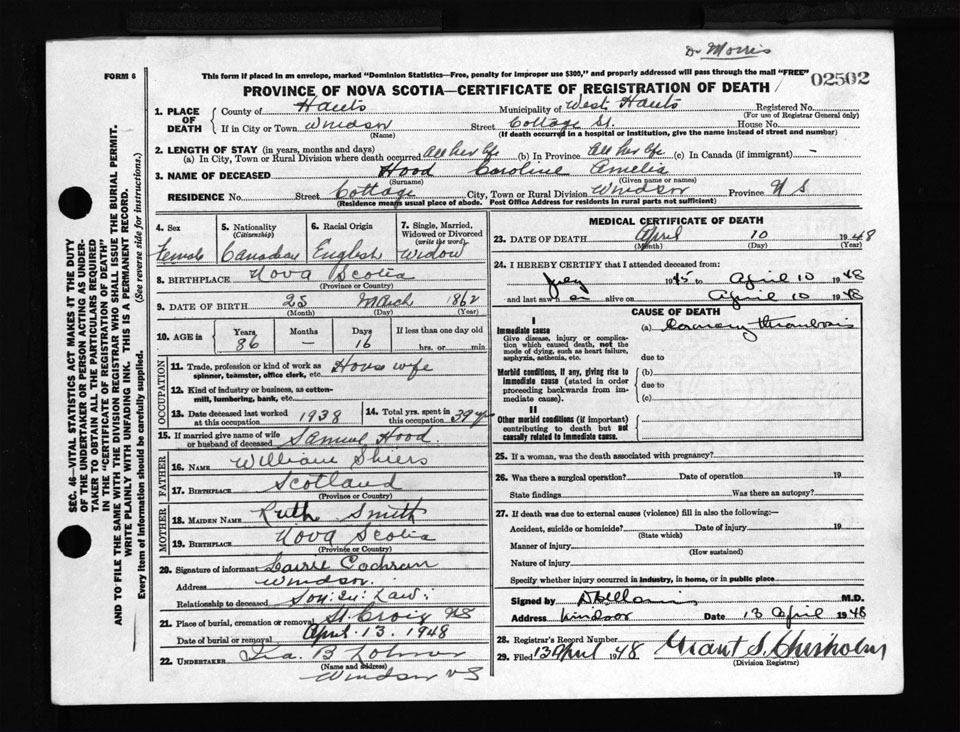 Dr Morris
FORM 6
This form if placed in an envelope, marked "Dominion Statistics—Free, penalty for improper use $300," and properly addressed will pass through the mail "FREE"
02502
PROVINCE OF NOVA SCOTIA—CERTIFICATE OF REGISTRATION OF DEATH
SEC. 46—VITAL STATISTICS ACT MAKES IT THE DUTY
OF THE UNDERTAKER OR PERSON ACTING AS UNDER-
TAKER TO OBTAIN ALL THE PARTICULARS REQUIRED
IN THE "CERTIFICATE OF REGISTRATION OF DEATH"
AND TO FILE THE SAME WITH THE DIVISION REGISTRAR WHO SHALL ISSUE THE BURIAL PERMIT.
WRITE PLAINLY WITH UNFADING INK. THIS IS A PERMANENT RECORD.
Every item of information should be carefully supplied. (See reverse side for instructions.)
1. PLACE OF DEATH
County of Hants Municipality of West Hants Registered No.
(For use of Registrar General only)
If in City or Town Windsor Street Cottage St. House No.
(Name) (If death occurred in a hospital or institution, give the name instead of street and number)
2. LENGTH OF STAY (in years, months and days)
(a) In City, Town or Rural Division where death occurred All her life (b) In Province All her life (c) In Canada (if immigrant) -
3. NAME OF DECEASED Hood Caroline Amelia
(Surname) (Given name or names)
RESIDENCE No. Street Cottage City, Town or Rural Division Windsor Province N S
(Residence means usual place of abode. Post Office Address for residents in rural parts not sufficient)
4. Sex
Female
5. Nationality
(Citizenship)
Canadian
6. Racial Origin
English
7. Single, Married,
Widowed or Divorced
(write the word)
Widow
8. BIRTHPLACE Nova Scotia
(Province or Country)
9. DATE OF BIRTH 25 March 1862
(Month) (Day) (Year)
10. AGE IN
Years 86
Months —
Days 16
If less than one day old
hrs. or min.
OCCUPATION
11. Trade, profession or kind of work as House wife
spinner, teamster, office clerk, etc.
12. Kind of industry or business, as cotten-
mill, lumbering, bank, etc.
13. Date deceased last worked 1938
at this occupation
14. Total yrs. spent in
this occupation
15. If married give name of wife Samuel Hood.
or husband of deceased
FATHER
16. NAME William Shiers
17. BIRTHPLACE Scotland
(Province or Country)
MOTHER
18. MAIDEN NAME Ruth Smith
19. BIRTHPLACE Nova Scotia
(Province or Country)
20. Signature of informant Cochran
Address Windsor.
Relationship to deceased Son: in: Law:
21. Place of burial, cremation or removal St. Croix NS
Date of burial or removal April. 13. 1948
22. UNDERTAKER Ira. B
(Name and address)
Windsor NS
MEDICAL CERTIFICATE OF DEATH
23. DATE OF DEATH April 10 1948
(Month) (Day) (Year)
24. I HEREBY CERTIFY that I attended deceased from:
1945 to April 10 1948
and last saw alive on April 10 1948
CAUSE OF DEATH
I
Immediate cause
Give disease, injury or complica-
tion which caused death, not the
mode of dying, such as heart failure,
asphyxia, asthenia, etc.
(a) Coronary thrombosis
due to
Morbid conditions, if any, giving rise to
immediate cause (stated in order
proceeding backwards from im-
mediate cause).
(b)
due to
(c)
II
Other morbid conditions (if important)
contributing to death but not
causally related to immediate cause.
25. If a woman, was the death associated with pregnancy?
26. Was there a surgical operation? Date of operation 19
State findings Was there an autopsy?
27. If death was due to external causes (violence) fill in also the following:—
Accident, suicide or homicide? Date of injury 19
(State which)
Manner of injury
(How sustained)
Nature of injury
Specify whether injury occurred in industry, in home, or in public place
Signed by M.D.
Address Windsor Date 13 April 1948
28. Registrar's Record Number
29. Filed 13 April 1948 Grant S. Chisholm
(Division Registrar)